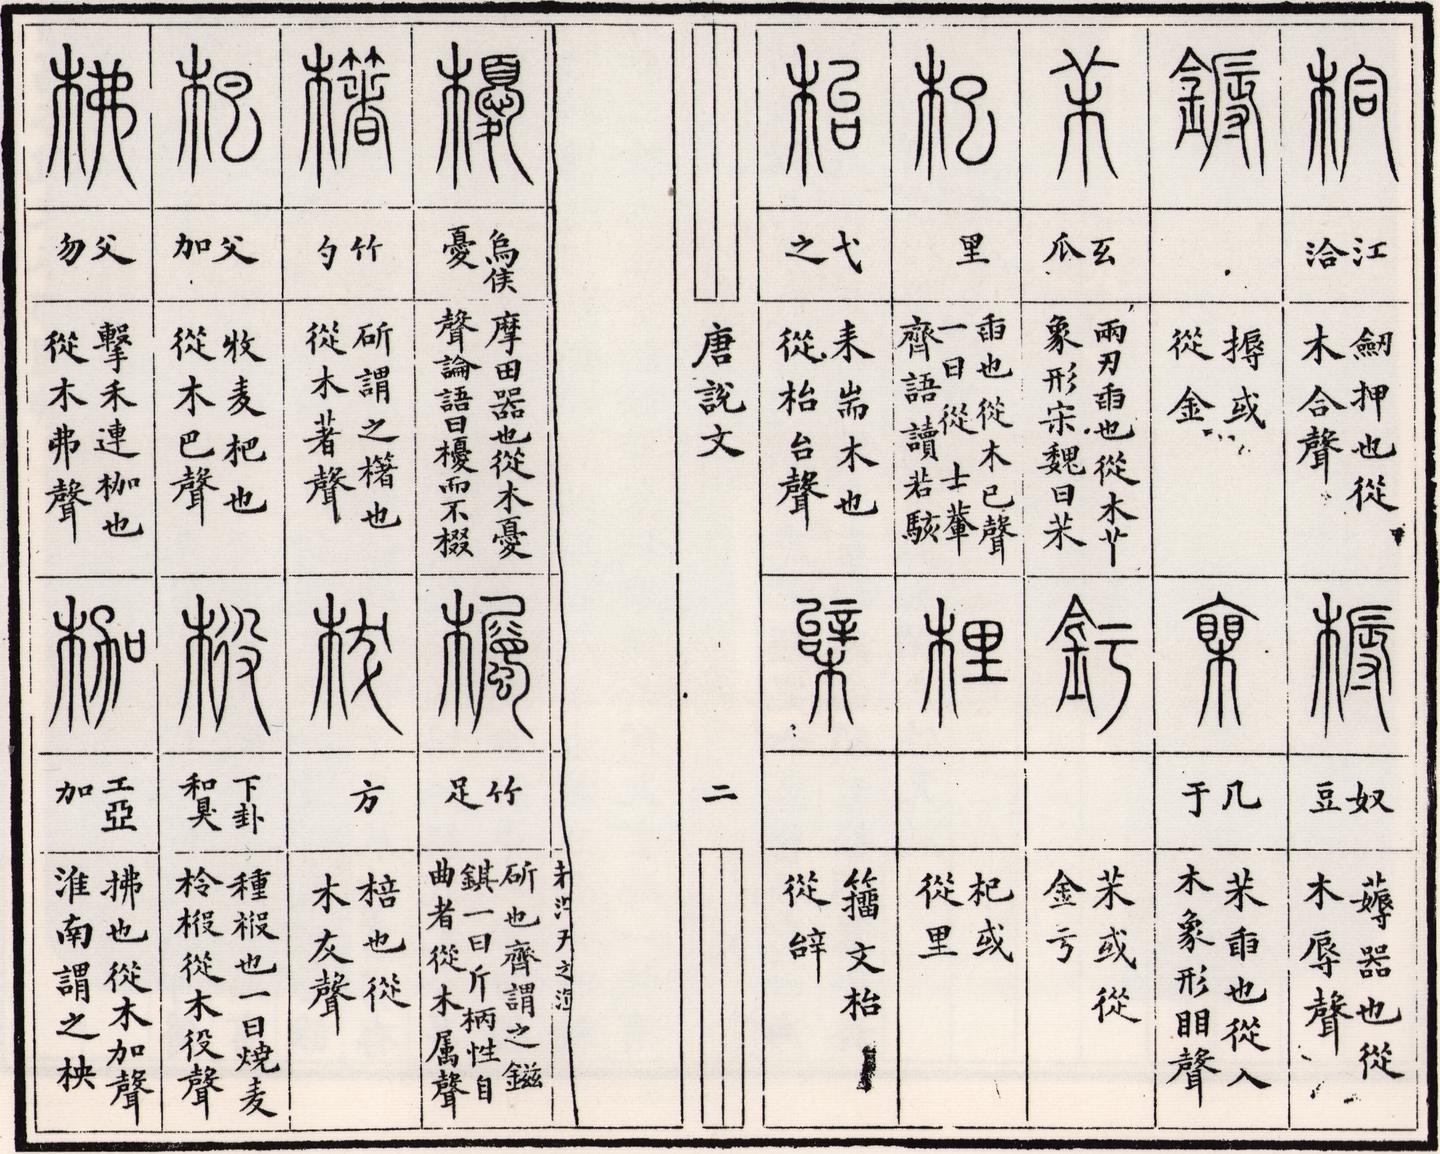 枱
江洽
劒押也從
木合聲
鎒
搙或
從金
𣎵
玄瓜
兩刃臿也從木丫
象形宋魏曰𣎵
杞
里
臿也從木已聲
一曰從士輂
齊語讀若駭
枱
弋之
耒耑木也
從枱台聲
槈
奴豆
薅器也從
木辱聲
几于
𣎵臿也從入
木象形䀠聲
釫
𣎵或從
金亏
梩
杞或
從里
籒文枱
從辝
唐說文
二
櫌
烏侯憂
摩田器也從木憂
聲論語曰櫌而不棳
櫡
竹勺
斫謂之櫡也
從木著聲
杷
父加
收麦杷也
從木巴聲
柫
父勿
擊禾連枷也
從木弗聲
欘
竹足
斫也齊謂之鎡
錤一曰斤柄性自
曲者從木属聲
柭
方
棓也從
木犮聲
椴
下卦
和臭
種椴也一曰燒麦
柃椴從木役聲
枷
工亞
加
拂也從木加聲
淮南謂之柍